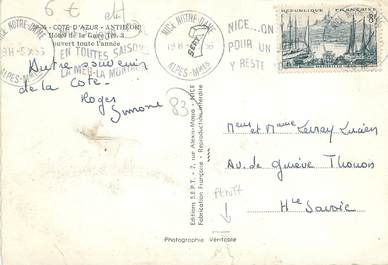 6 €
COTE D'AZUR - ANTHÉOR
Hôtel de la Gare Tél. 3
ouvert toute l'année
NICE NOTRE-DAME
ALPES-MMES
EN TOUTES SAISONS
LA MER-LA MONTAGNE
NICE NOTRE-DAME
ALPES-MMES
NICE...ON
POUR UN
Y RESTE
RÉPUBLIQUE FRANÇAISE
8F
Autre souvenir
de la Côte
Roger
Simone
83
Editions S.E.P.T. - 7, rue Alexis-Mossa - NICE
Fabrication Française - Reproduction Interdite
Meur et Mame Leuray Lucien
Av. de Genève Thonon
Hte Savoie
Photographie Véritable